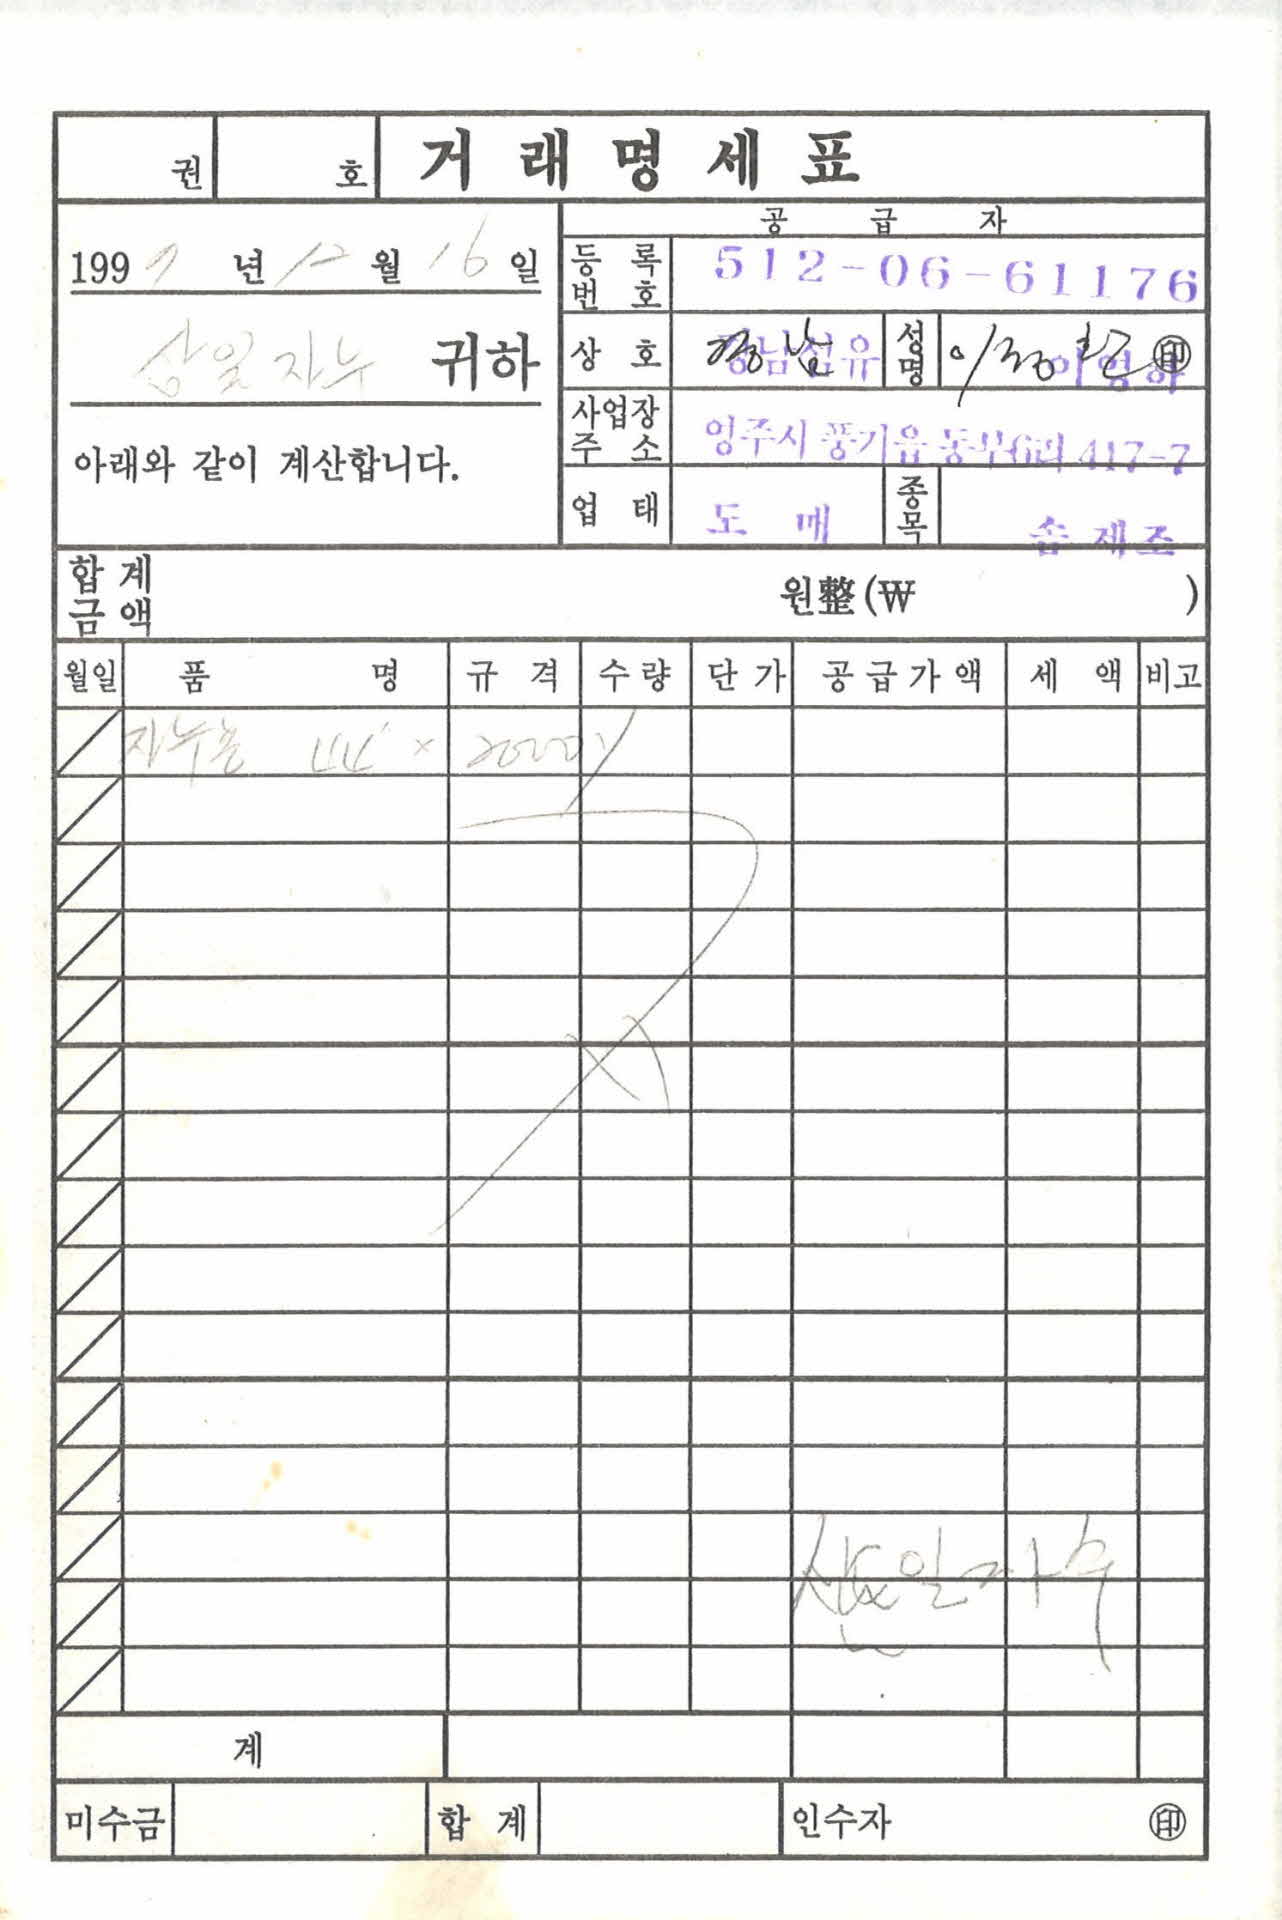 권 호 거래명세표
공 급 자
1997 년 12 월 16 일
등록번호 512-06-61176
귀하
상호 경남섬유 성명 이영하 ㊞
사업장주소 영주시 풍기읍 동부6리 417-7
아래와 같이 계산합니다.
업태 도매 종목 솜제조
합계금액 원整(₩ )
월일 품명 규격 수량 단가 공급가액 세액 비고
44" × 2000
삼일자수
계
미수금 합계 인수자 ㊞